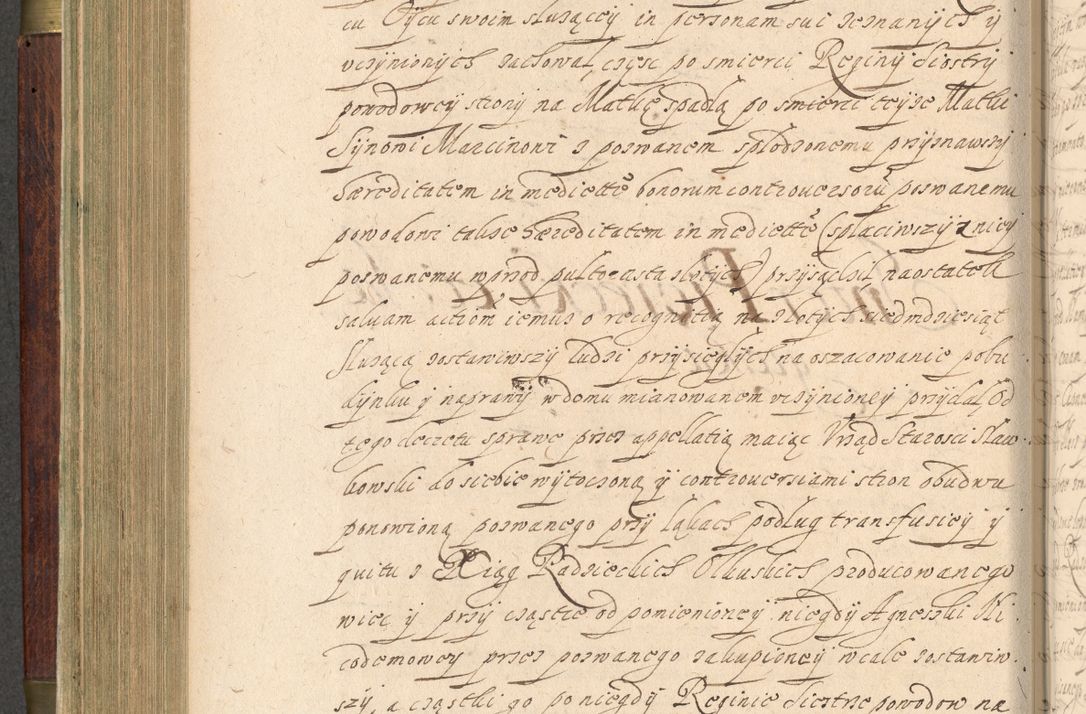 cu Oycu swoim służącey in personam sui zeznanych y
uczynionych zachował, część po smierci Reginy Siostry
powodowey strony na Matkę spadłą po smierci teyze Matki
Synowi Marcinowi z pozwanem spłodzonemu przyznawszy
haereditatem in medietatẽ bonorum controuersorũ pozwanemu
powodowi takze haereditatem in medietatẽ (spłaciwszy z niey
pozwanemu wprzod pułtorasta złotych) przysądził na ostatek
saluam actiom iemuz o recognitią na złotych siedmdziesiąt
służącą zostawiwszy ludzi przysięgłych na oszacowanie pobu
dynku y naprawy w domu mianowanem uczynioney przydał. Od
tego decretu sprawę przez appellatią maiąc Urząd Starosci Sław
kowski do siebie wytoczoną y controuersiami stron obudwu
ponowioną pozwanego przy łąkach podług transfusiey y
quitu z Xiąg Radzieckich Olkuskich producowanego
więc y przy cząstce od pomienioney niegdy Agneszki Ni
codemowey przez pozwanego zakupioney wcale zostawiw
szy, a cząstki po niegdy Reginie Siestrze powodow na